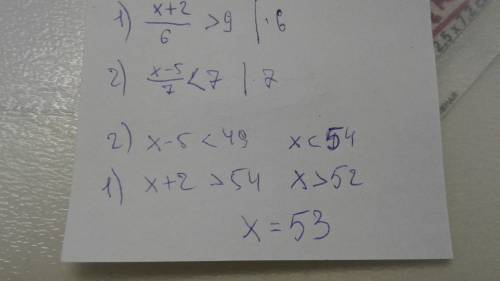 1) (x+2)/6 >9 |·6
2) (x-5)/7 <7 |·7
2) x-5<49 x<54
1) x+2>54 x>52
x=53